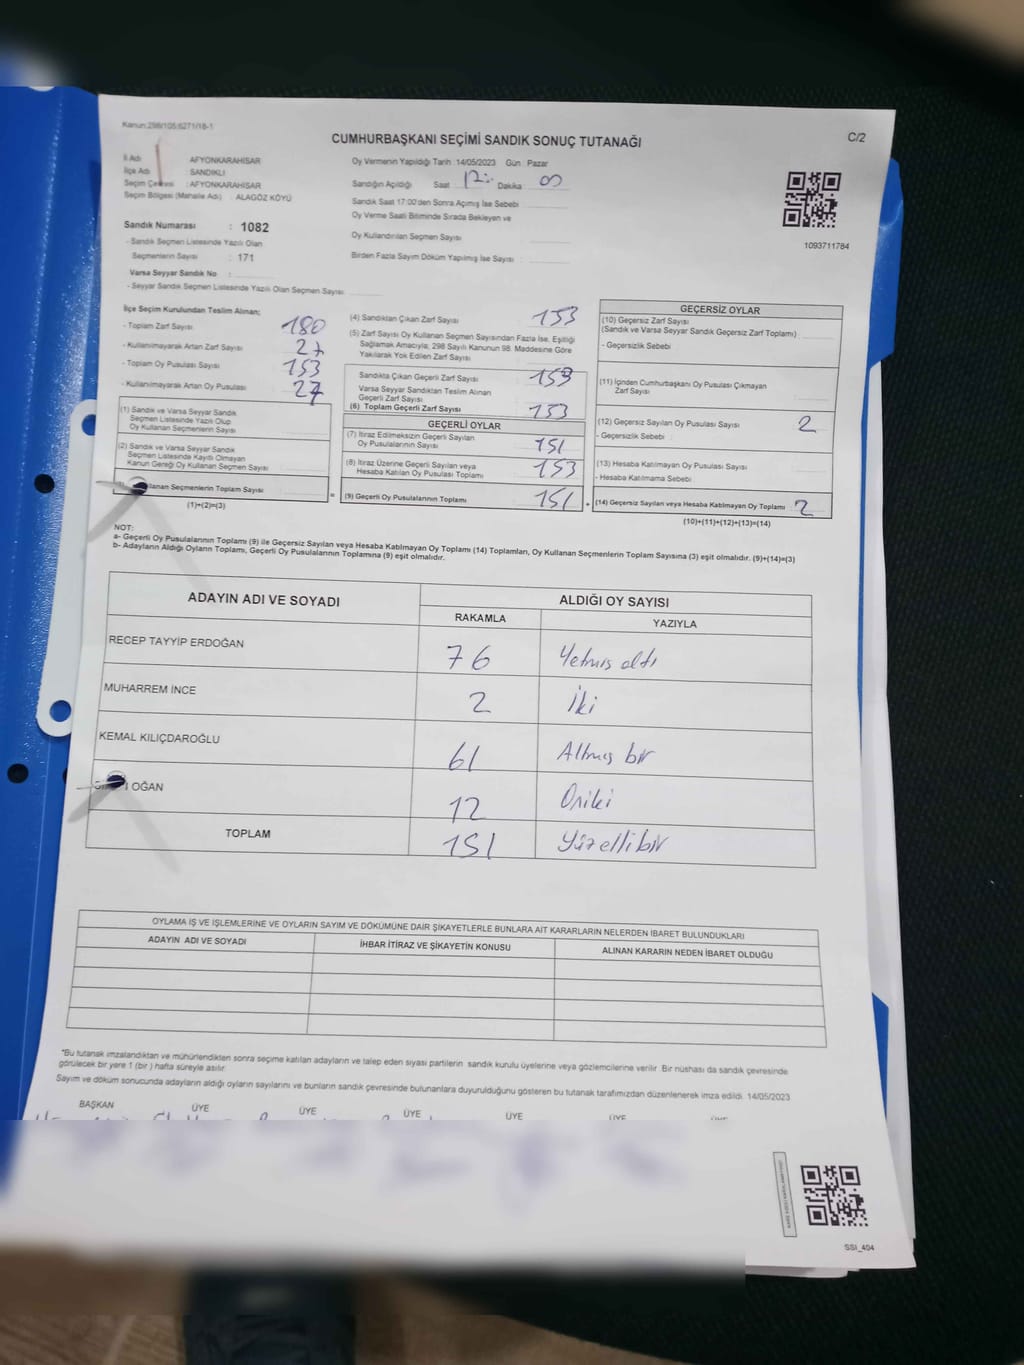 Kanun:298/105;6271/18-1
CUMHURBAŞKANI SEÇİMİ SANDIK SONUÇ TUTANAĞI
C/2
İl Adı : AFYONKARAHİSAR
İlçe Adı : SANDIKLI
Seçim Çevresi : AFYONKARAHİSAR
Seçim Bölgesi (Mahalle Adı) : ALAGÖZ KÖYÜ
Sandık Numarası : 1082
- Sandık Seçmen Listesinde Yazılı Olan
Seçmenlerin Sayısı : 171
Varsa Seyyar Sandık No :
- Seyyar Sandık Seçmen Listesinde Yazılı Olan Seçmen Sayısı:
Oy Vermenin Yapıldığı Tarih :14/05/2023 Gün : Pazar
Sandığın Açıldığı Saat Dakika : 00
Sandık Saat 17:00'den Sonra Açımış İse Sebebi
Oy Verme Saati Bitiminde Sırada Bekleyen ve
Oy Kullandırılan Seçmen Sayısı
Birden Fazla Sayım Döküm Yapılmış İse Sayısı :
1093711784
İlçe Seçim Kurulundan Teslim Alınan;
- Toplam Zarf Sayısı 180
- Kullanılmayarak Artan Zarf Sayısı 27
- Toplam Oy Pusulası Sayısı 153
- Kullanılmayarak Artan Oy Pusulası 27
(1) Sandık ve Varsa Seyyar Sandık
Seçmen Listesinde Yazılı Olup
Oy Kullanan Seçmenlerin Sayısı
(2) Sandık ve Varsa Seyyar Sandık
Seçmen Listesinde Kayıtlı Olmayan
Kanun Gereği Oy Kullanan Seçmen Sayısı
Seçmenlerin Toplam Sayısı =
(1)+(2)=(3)
(4) Sandıktan Çıkan Zarf Sayısı 153
(5) Zarf Sayısı Oy Kullanan Seçmen Sayısından Fazla İse, Eşitliği
Sağlamak Amacıyla; 298 Sayılı Kanunun 98. Maddesine Göre
Yakılarak Yok Edilen Zarf Sayısı
Sandıkta Çıkan Geçerli Zarf Sayısı 153
Varsa Seyyar Sandıktan Teslim Alınan
Geçerli Zarf Sayısı
(6) Toplam Geçerli Zarf Sayısı 153
GEÇERLİ OYLAR
(7) İtiraz Edilmeksizin Geçerli Sayılan
Oy Pusulalarının Sayısı 151
(8) İtiraz Üzerine Geçerli Sayılan veya
Hesaba Katılan Oy Pusulası Toplamı 153
(9) Geçerli Oy Pusulalarının Toplamı 151 +
GEÇERSİZ OYLAR
(10) Geçersiz Zarf Sayısı
(Sandık ve Varsa Seyyar Sandık Geçersiz Zarf Toplamı)
- Geçersizlik Sebebi
(11) İçinden Cumhurbaşkanı Oy Pusulası Çıkmayan
Zarf Sayısı
(12) Geçersiz Sayılan Oy Pusulası Sayısı 2
- Geçersizlik Sebebi :
(13) Hesaba Katılmayan Oy Pusulası Sayısı
- Hesaba Katılmama Sebebi
(14) Geçersiz Sayılan veya Hesaba Katılmayan Oy Toplamı 2
(10)+(11)+(12)+(13)=(14)
NOT:
a- Geçerli Oy Pusulalarının Toplamı (9) ile Geçersiz Sayılan veya Hesaba Katılmayan Oy Toplamı (14) Toplamları, Oy Kullanan Seçmenlerin Toplam Sayısına (3) eşit olmalıdır. (9)+(14)=(3)
b- Adayların Aldığı Oyların Toplamı, Geçerli Oy Pusulalarının Toplamına (9) eşit olmalıdır.
ADAYIN ADI VE SOYADI ALDIĞI OY SAYISI
RAKAMLA YAZIYLA
RECEP TAYYİP ERDOĞAN 76 Yetmiş altı
MUHARREM İNCE 2 İki
KEMAL KILIÇDAROĞLU 61 Altmış bir
OĞAN 12 Oniki
TOPLAM 151 Yüzellibir
OYLAMA İŞ VE İŞLEMLERİNE VE OYLARIN SAYIM VE DÖKÜMÜNE DAİR ŞİKAYETLERLE BUNLARA AİT KARARLARIN NELERDEN İBARET BULUNDUKLARI
ADAYIN ADI VE SOYADI İHBAR İTİRAZ VE ŞİKAYETİN KONUSU ALINAN KARARIN NEDEN İBARET OLDUĞU
*Bu tutanak imzalandıktan ve mühürlendikten sonra seçime katılan adayların ve talep eden siyasi partilerin sandık kurulu üyelerine veya gözlemcilerine verilir. Bir nüshası da sandık çevresinde
görülecek bir yere 1 (bir ) hafta süreyle asılır.
Sayım ve döküm sonucunda adayların aldığı oyların sayılarını ve bunların sandık çevresinde bulunanlara duyurulduğunu gösteren bu tutanak tarafımızdan düzenlenerek imza edildi. 14/05/2023
BAŞKAN ÜYE ÜYE ÜYE ÜYE ÜYE ÜYE
SSI_404